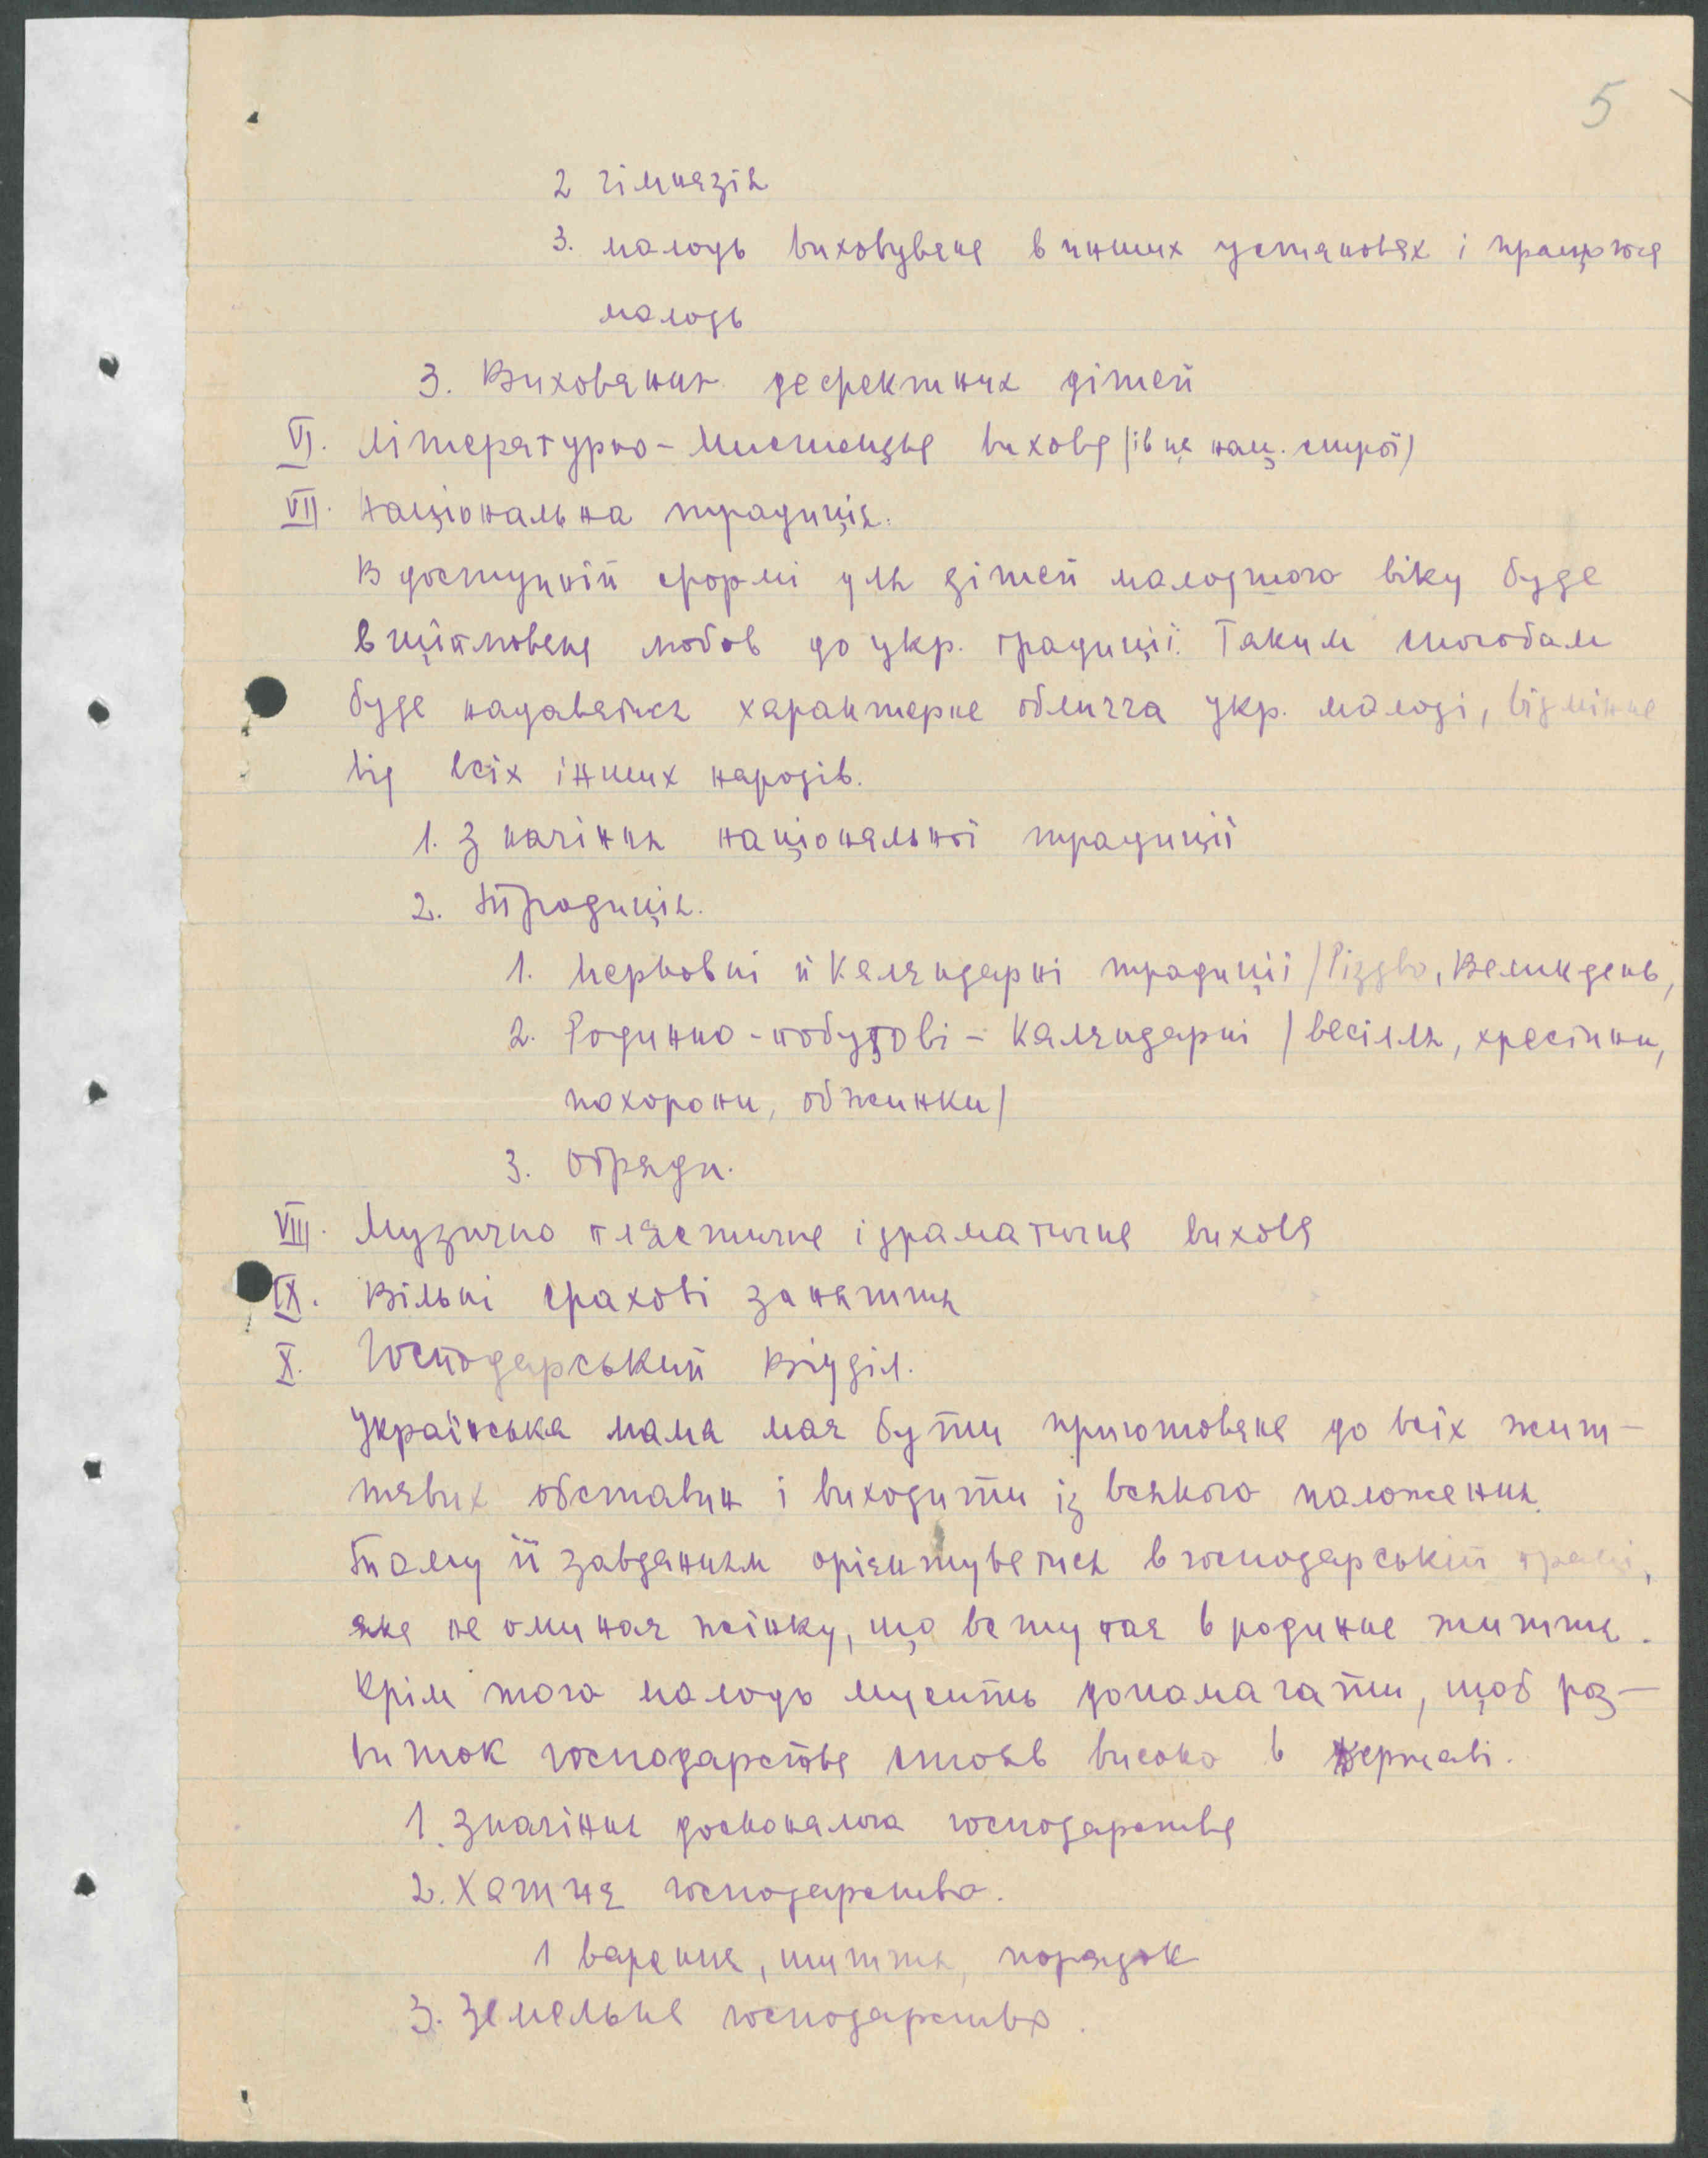 5
2 гімназія
3. молодь виховувана в инших установах і працююча
молодь
3. Виховання дефектних дітей
VI. Літературно-Мистецьке вихова (ів на нац. строї)
VII. Національна традиція.
В доступній формі для дітей молодшого віку буде
вщіплювана любов до укр. традиції. Таким способом
буде надаватись характерне обличча укр. молоді, відмінне
від всіх інших народів.
1. Значіння національної традиції
2. Традиція.
1. Церковні й Календарні традиції /Різдво, Великдень,
2. Родинно-побутові - Календарні /весілля, хрестини,
похорони, обжинки/
3. Обряди.
VIII. Музично плястичне і драматичне вихова
IX. Вільні фахові заняття
X. Господарський Відділ.
Українська мама має бути приготована до всіх жит-
тєвих обставин і виходити із всякого положення.
Тому її завданням орієнтуватись в господарській праці,
яка не оминає жінку, що вступає в родинне життя.
Крім того молодь мусить допомагати, щоб роз-
виток господарства стояв високо в державі.
1. Значіння досконалого господарства
2. Хатнє господарство.
1 варення, шиття, порядок
3. Земельне господарство.